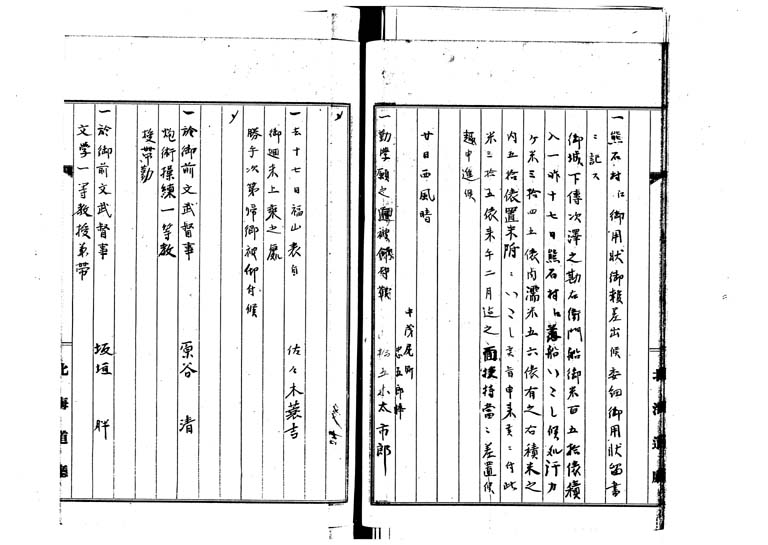 一熊石村江御用状御頼差出候委細御用状留書
ニ記ス
御城下傳次澤之勘右衛門船御米百五拾俵積
入一昨十七日熊石村江着船いたし候処行方
ケ米三拾四五俵内濡米五六俵有之右積米之
内五拾俵置米附ニいたし度旨申来ニ付此
米三拾五俵来午二月迄之面扶持當ニ差置候
趣申進候
廿日西風晴
中茂尻町
忠五郎倅
一勤学願之被仰付 小太市郎
北海道廳
一去十七日福山表ゟ
御廻米上乗之處 佐々木蓑吉
勝手次第帰郷被仰付候
一於御前文武督事 原谷清
炮術操練一等教
授帯勤
一於御前文武督事 坂垣胖
文学一等教授弟帯
北海道廳